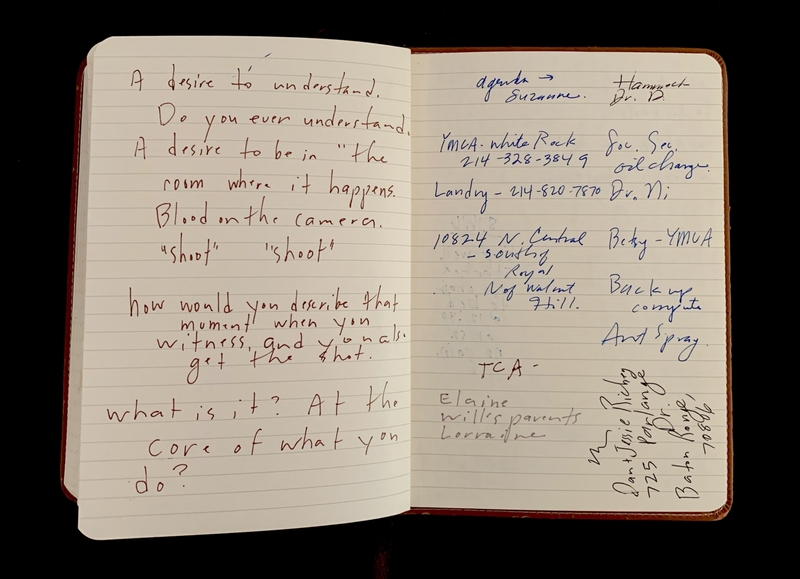 A desire to understand.
Do you ever understand.
A desire to be in "the
room where it happens.
Blood on the camera.
"shoot" "shoot"
how would you describe that
moment when you
witness, and you also
get the shot.
what is it? At the
core of what you
do?
agenda →
Suzanne.
YMCA - White Rock
214-328-3849
Landry - 214-820-7870
10824 N. Central
- South of
Royal
N of Walnut
Hill.
TCA -
Elaine
Will's parents
Lorraine
Hammock
Dr. D.
Soc. Sec.
oil change.
Dr. Ni
Betsy - YMCA
Back up
compute
Ant Spray.
Dan + Jessie Richey
725 Parlange
Dr.
Baton Rouge,
70806